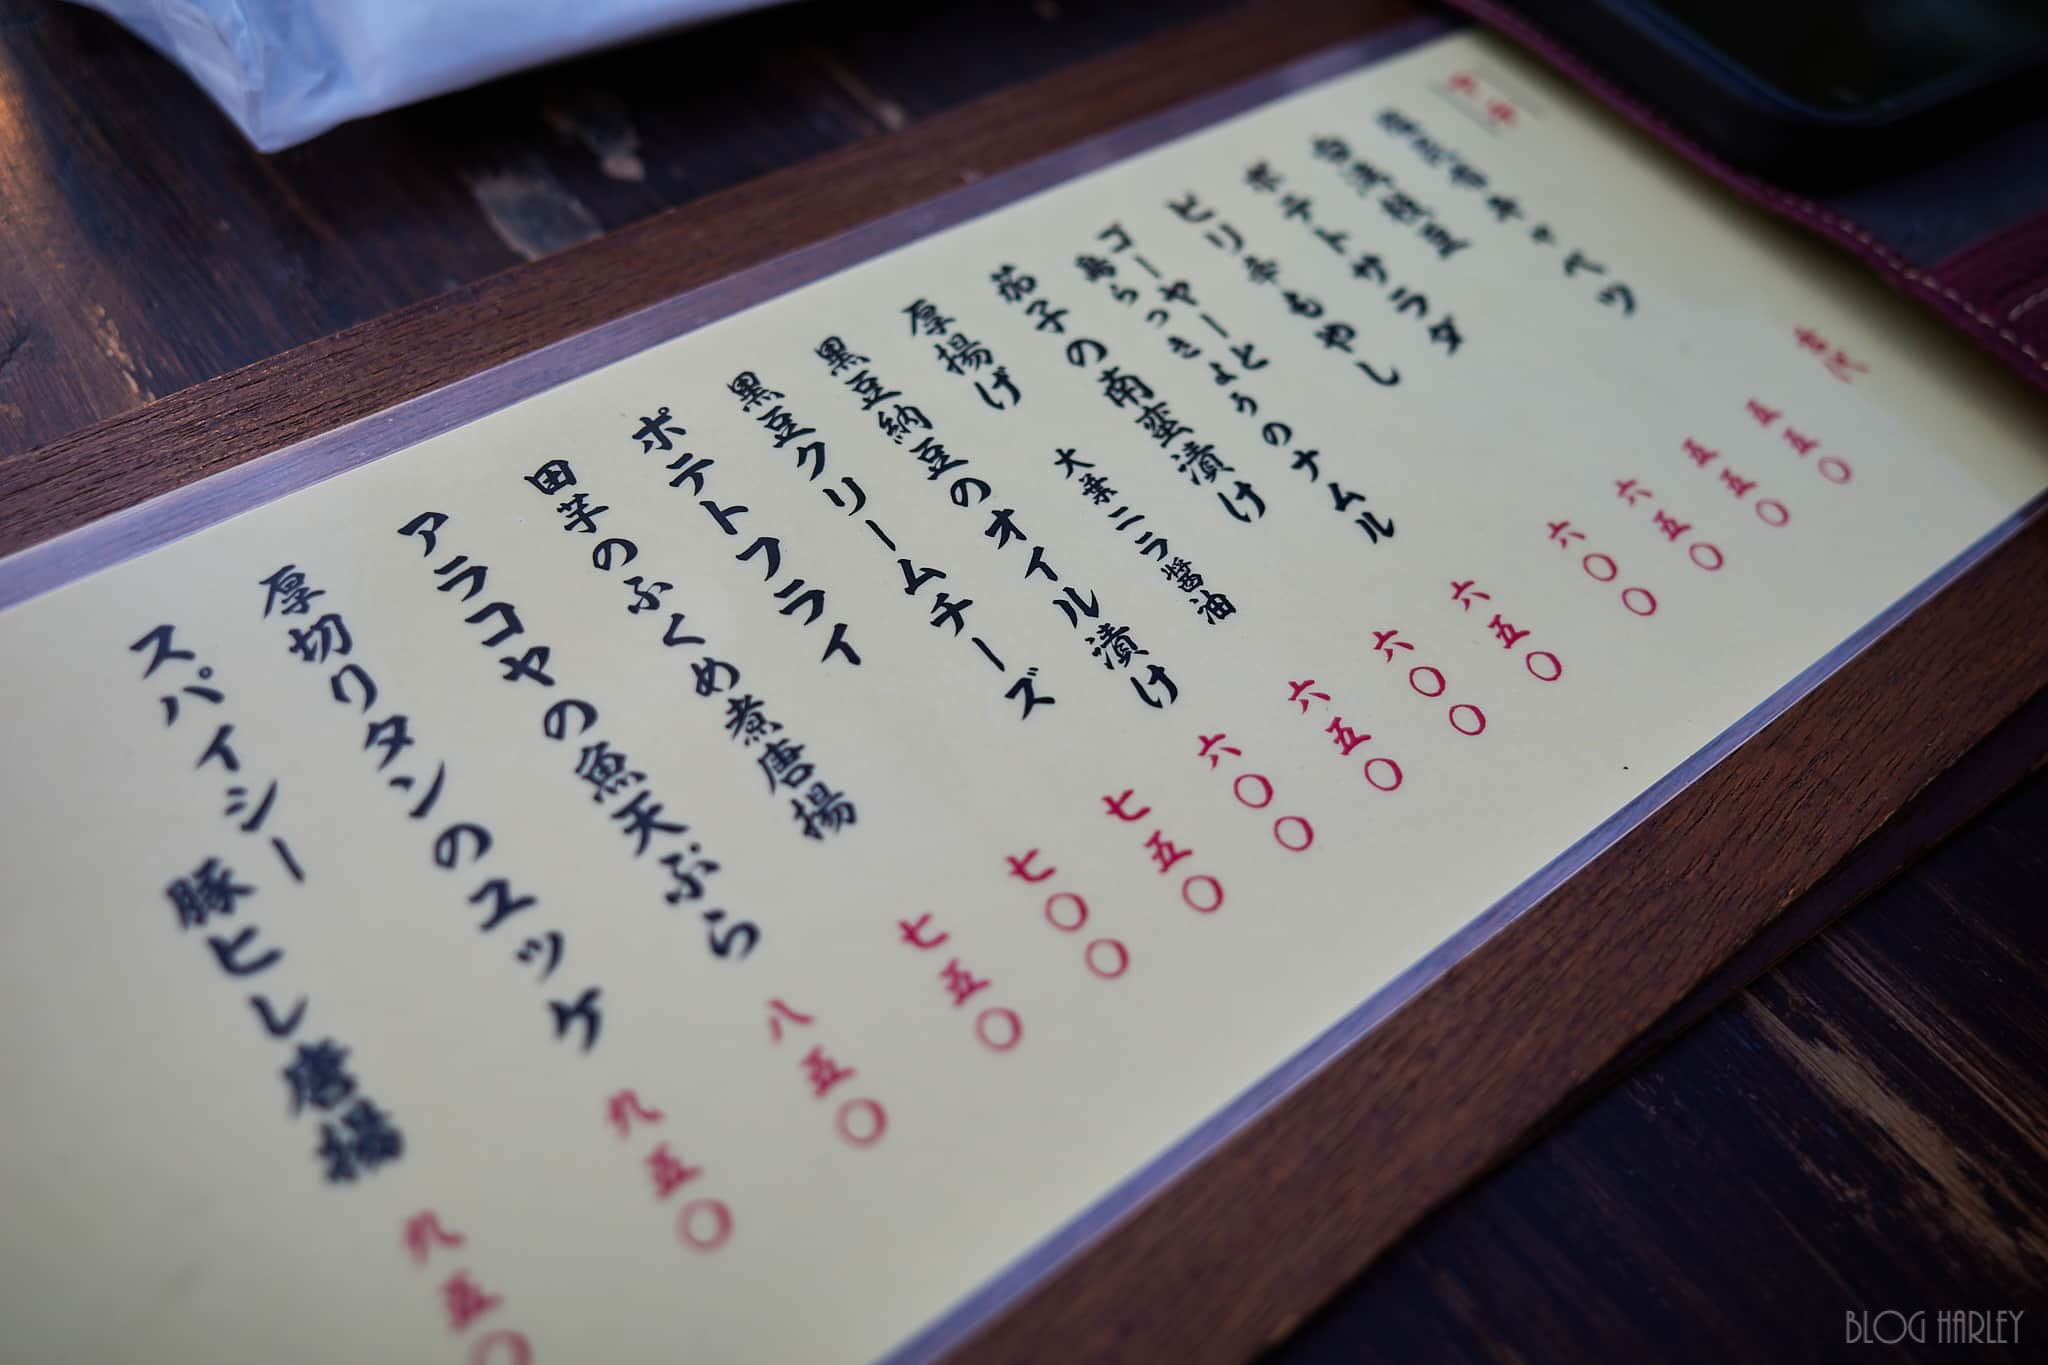 塩昆布キャベツ 五五〇
台湾枝豆 五五〇
ポテトサラダ 六五〇
ピリ辛もやし 六〇〇
ゴーヤーと
島らっきょうのナムル 六五〇
茄子の南蛮漬け 六〇〇
厚揚げ 大葉ニラ醤油 六五〇
黒豆納豆のオイル漬け 六〇〇
黒豆クリームチーズ 七五〇
ポテトフライ 七〇〇
田芋のふくめ煮唐揚 七五〇
アラコヤの魚天ぷら 八五〇
厚切りタンのユッケ 九五〇
スパイシー 豚ヒレ唐揚 九五〇
BLOG HARLEY